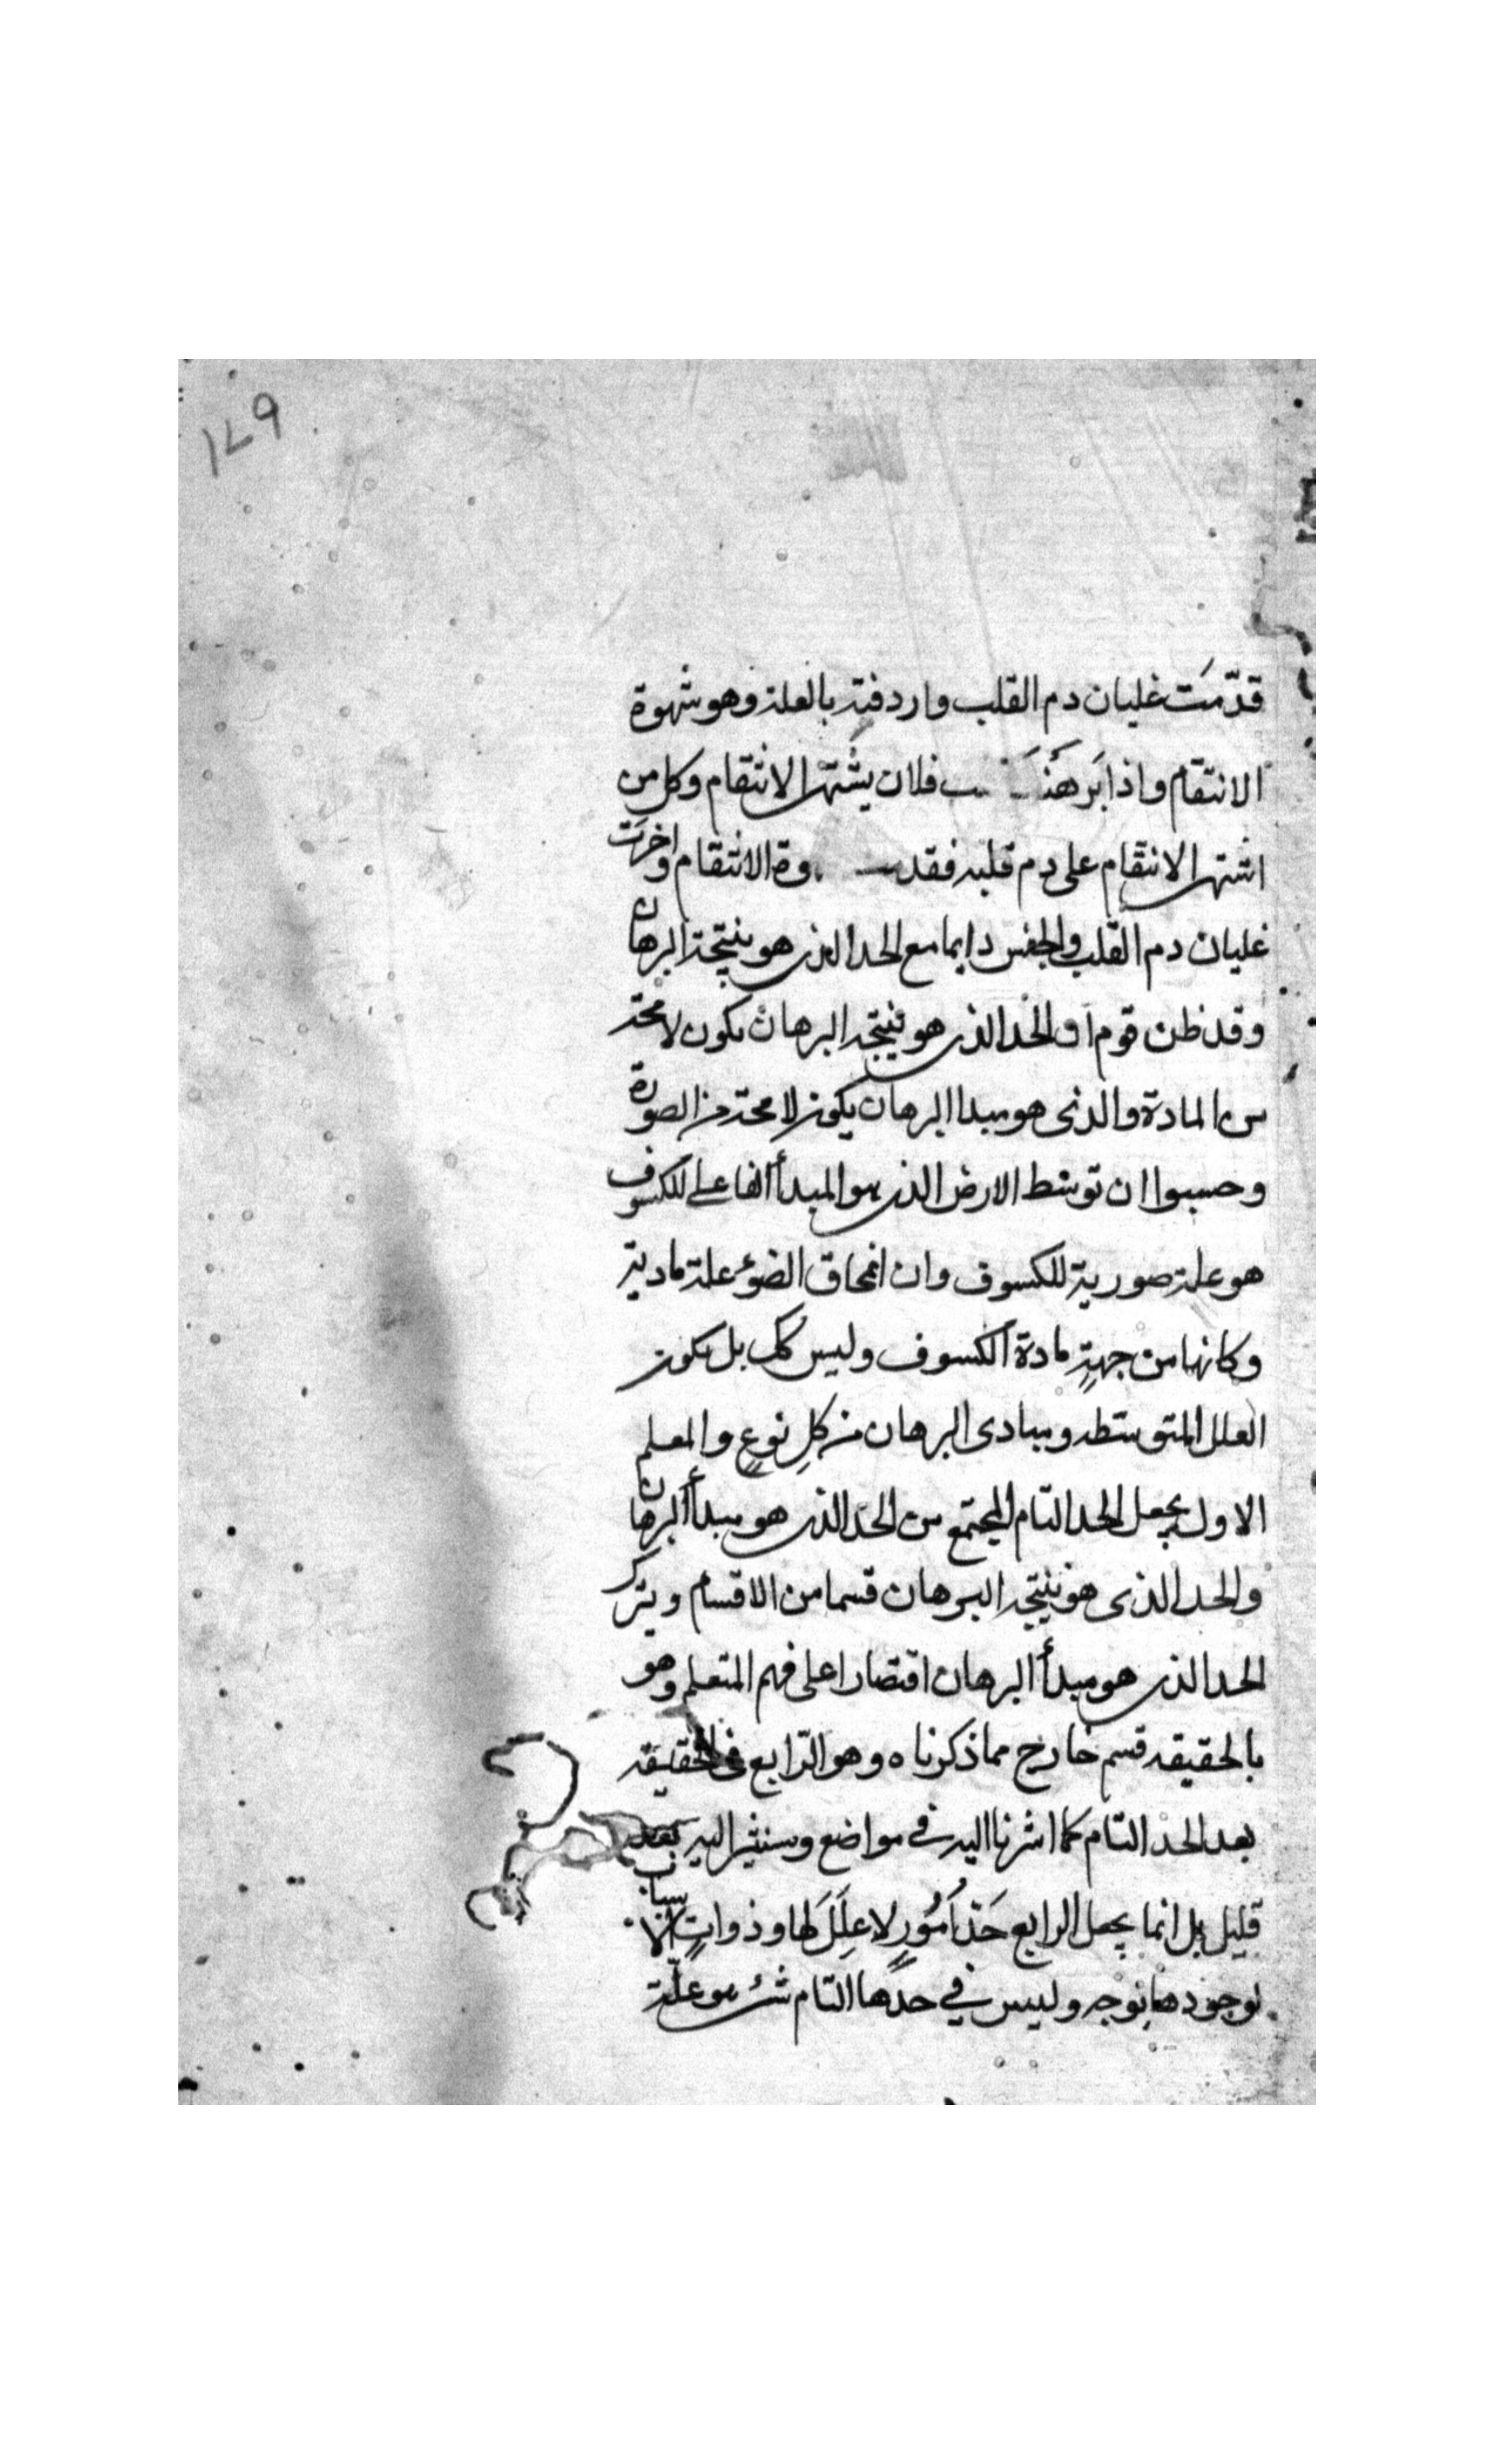 ١٤٩
قدّمت غليان دم القلب واردفته بالعلة وهو شهوة
الانتقام واذا برهنت فلان يشتهى الانتقام وكل من
اشتهى الانتقام على دم قلبه فقد الانتقام واخرت
غليان دم القلب والجنس دايما مع الحد الذى هو نتيجة البرهان
وقد ظن قوم ان الحد الذى هو نتيجة البرهان يكون لا محة
من المادة والذى هو مبدا البرهان يكون لا محة من الصورة
وحسبوا ان توسّط الارض الذى هو المبدأ الفاعلى للكسوف
هو علة صورية للكسوف وان انمحاق الضوء علة مادية
وكانها من جهةٍ مادة الكسوف وليس كك بل يكون
العلل المتوسّطه ومبادى البرهان من كلِ نوعٍ والمعلم
الاول يجعل الحد التام المجتمع من الحد الذى هو مبدأ البرهان
والحد الذى هو نتيجه البرهان قسما من الاقسام ويترك
الحد الذى هو مبدأ البرهان اقتصارا على فهم المتعلم وهو
بالحقيقه قسم خارج مما ذكرناه وهو الرّابع فى الحقيقه
بعد الحد التام كما اشرنا اليه فى مواضع وسنشير اليه بعد
قليل بل انما يجعل الرابع حَدّ اُمُورٍ لا عِلَلَ لَها وذواتٍ الاسباب
لوجودها بوجه وليس في حدها التام شئ هو علّة